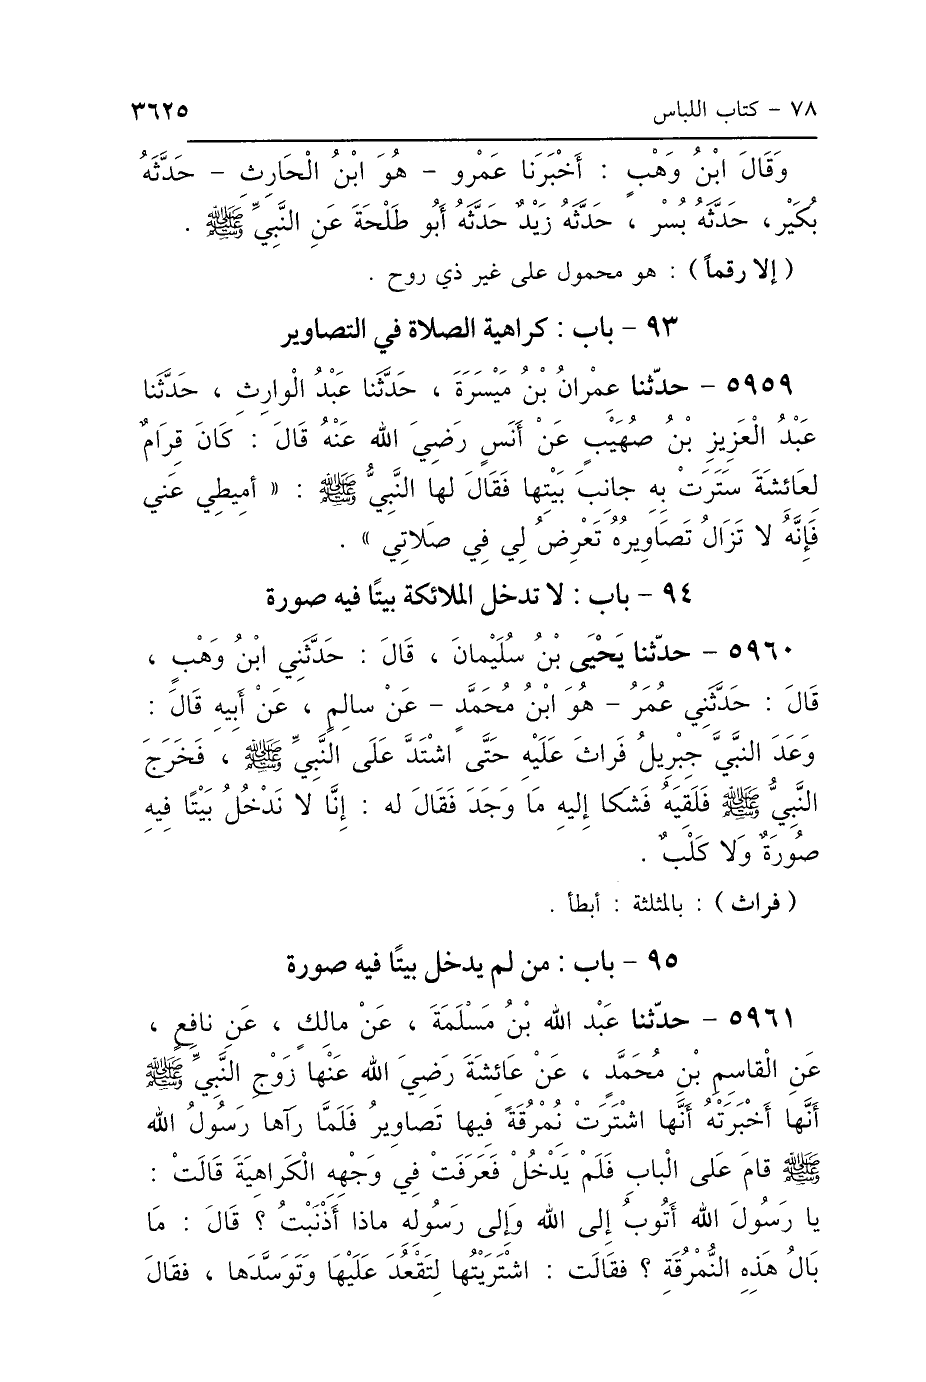 ٧٨ - كتاب اللباس ٣٦٢٥
وَقَالَ ابْنُ وَهْبٍ : أَخْبَرَنَا عَمْرو - هُوَ ابْنُ الْحَارِثِ - حَدَّثَهُ
بُكَيْر، حَدَّثَهُ بُسْر ، حَدَّثَهُ زَيْدٌ حَدَّثَهُ أَبُو طَلْحَةَ عَنِ النَّبِيِّ ﷺ .
( إلا رقماً ) : هو محمول على غير ذي روح .
٩٣ - باب : كراهية الصلاة في التصاوير
٥٩٥٩ - حدّثنا عِمْرانُ بْنُ مَيْسَرَةَ ، حَدَّثَنا عَبْدُ الْوارِثِ ، حَدَّثَنا
عَبْدُ الْعَزِيزِ بْنُ صُهَيْبٍ عَنْ أَنَسٍ رَضِيَ الله عَنْهُ قَالَ : كَانَ قِرَامٌ
لِعَائِشَةَ سَتَرَتْ بِهِ جانِبَ بَيْتِها فَقَالَ لها النَّبيُّ ﷺ : « أميطِي عَني
فَإِنَّهُ لا تَزَالُ تَصَاوِيرُهُ تَعْرِضُ لِي فِي صَلاتِي » .
٩٤ - باب : لا تدخل الملائكة بيتًا فيه صورة
٥٩٦٠ - حدّثنا يَحْيَى بْنُ سُلَيْمانَ ، قَالَ : حَدَّثَنِي ابْنُ وَهْبٍ ،
قَالَ : حَدَّثَنِي عُمَرُ - هُوَ ابْنُ مُحَمَّدٍ - عَنْ سالِمٍ ، عَنْ أَبيهِ قَالَ :
وَعَدَ النَّبيَّ جِبْرِيلُ فَراثَ عَلَيْهِ حَتَّى اشْتَدَّ عَلَى النَّبيِّ ﷺ ، فَخَرَجَ
النَّبيُّ ﷺ فَلَقِيَهُ فَشَكا إليهِ مَا وَجَدَ فَقَالَ له : إنَّا لا نَدْخُلُ بَيْتًا فِيهِ
صُورَةٌ وَلا كَلْبٌ .
( فراث ) : بالمثلثة : أبطأ .
٩٥ - باب : من لم يدخل بيتًا فيه صورة
٥٩٦١ - حدّثنا عَبْد الله بْنُ مَسْلَمَةَ ، عَنْ مالِكٍ ، عَنِ نافِعٍ ،
عَنِ الْقاسِمِ بْنِ مُحَمَّدٍ ، عَنْ عَائِشَةَ رَضِيَ الله عَنْها زَوْجِ النَّبيِّ ﷺ
أَنَّها أَخْبَرَتْهُ أَنَّها اشْتَرَتْ نُمْرُقَةً فِيها تَصاوِيرُ فَلَمَّا رَآها رَسُولُ الله
ﷺ قامَ عَلى الْبابِ فَلَمْ يَدْخُلْ فَعَرَفَتْ فِي وَجْهِهِ الْكَراهِيَةَ قَالَتْ :
يا رَسُولَ الله أَتُوبُ إلى الله وَإِلى رَسُولِهِ ماذا أَذْنَبْتُ ؟ قَالَ : مَا
بَالُ هَذِهِ النُّمْرُقَةِ ؟ فقَالَت : اشْتَرَيْتُها لِتَقْعُدَ عَلَيْهَا وَتَوَسَّدَها ، فقَالَ